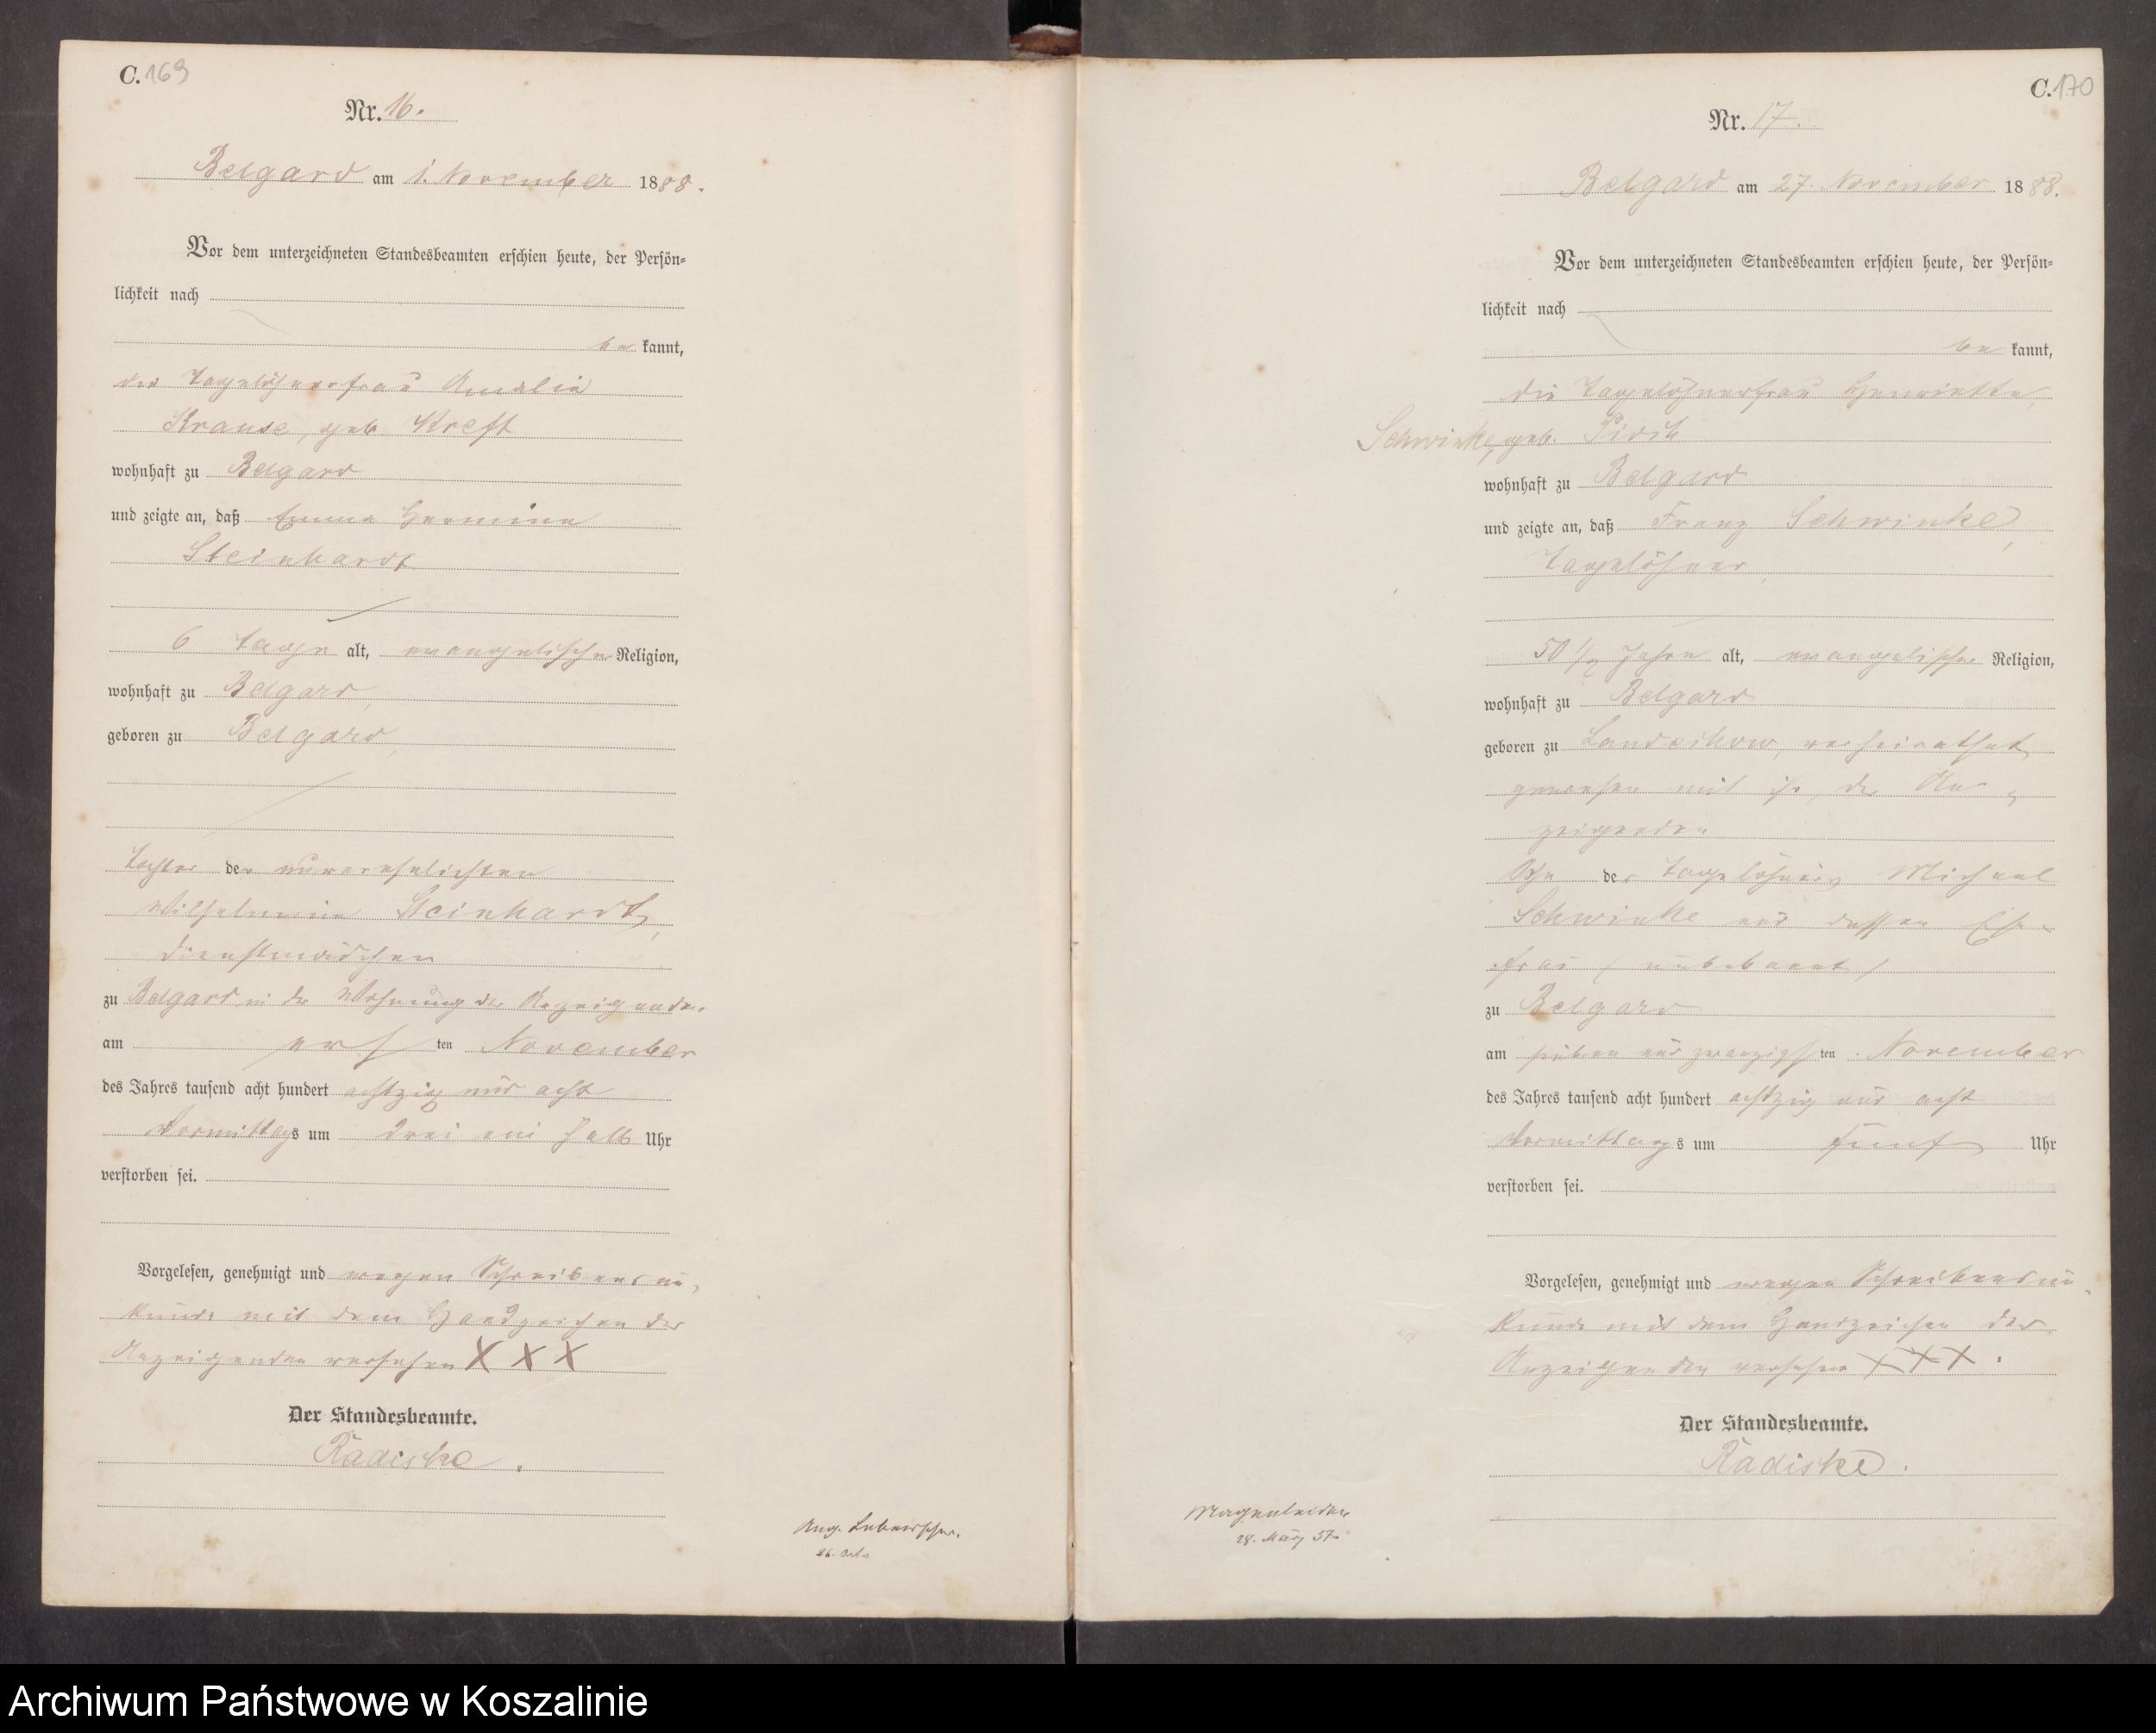 C. 169
Nr. 16.
Belgard am 1. November 1888.
Vor dem unterzeichneten Standesbeamten erschien heute, der Persön-
lichkeit nach
bekannt,
die Tagelöhnerfrau Amalie
Krause, geb. Kreft
wohnhaft zu Belgard
und zeigte an, daß Emma Hermine
Steinhardt
6 Tage alt, evangelischer Religion,
wohnhaft zu Belgard,
geboren zu Belgard,
Tochter der unverehelichten
Wilhelmine Steinhardt,
Dienstmädchen
zu Belgard in der Wohnung der Anzeigenden
am ersten November
des Jahres tausend acht hundert achtzig und acht
Vormittags um drei ein halb Uhr
verstorben sei.
Vorgelesen, genehmigt und wegen Schreibensun-
kunde mit dem Handzeichen der
Anzeigenden versehen X X X
Der Standesbeamte.
Radiske.
26. Oct.
C. 170
Nr. 17.
Belgard am 27. November 1888.
Vor dem unterzeichneten Standesbeamten erschien heute, der Persön-
lichkeit nach
bekannt,
die Tagelöhnerfrau Henriette
Schwinke, geb.
wohnhaft zu Belgard
und zeigte an, daß Franz Schwinke,
Tagelöhner,
50 1/2 Jahre alt, evangelischer Religion,
wohnhaft zu Belgard
geboren zu Landechow, verheirathet
gewesen mit ihr, der An-
zeigenden
Sohn des Tagelöhners Michael
Schwinke und dessen Ehe-
frau (unbekannt)
zu Belgard
am sieben und zwanzigsten November
des Jahres tausend acht hundert achtzig und acht
Vormittags um fünf Uhr
verstorben sei.
Vorgelesen, genehmigt und wegen Schreibensun-
kunde mit dem Handzeichen der
Anzeigenden versehen XXX.
Der Standesbeamte.
Radiske.
Magenleiden
28. März 57
Archiwum Państwowe w Koszalinie